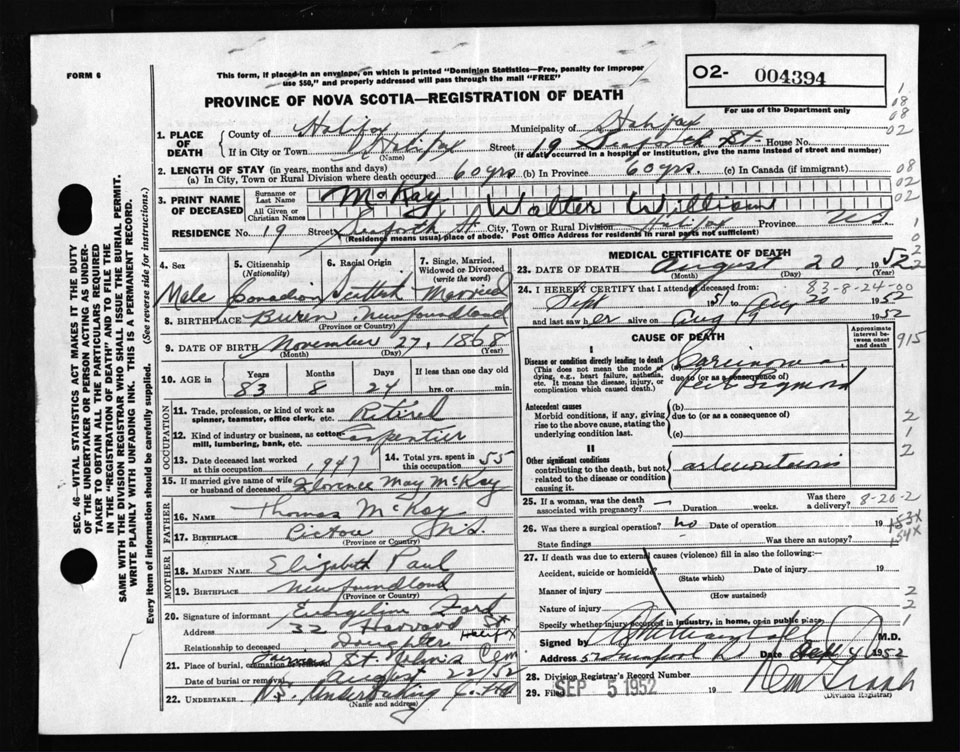 FORM 6
This form, if placed in an envelope, on which is printed "Dominion Statistics—Free, penalty for improper
use $50," and properly addressed will pass through the mail "FREE"
PROVINCE OF NOVA SCOTIA—REGISTRATION OF DEATH
O2- 004394
For use of the Department only
1. PLACE OF DEATH
County of Halifax Municipality of Halifax
If in City or Town Halifax Street 19 Seaforth St House No.
(Name) (If death occurred in a hospital or institution, give the name instead of street and number)
2. LENGTH OF STAY (in years, months and days)
(a) In City, Town or Rural Division where death occurred 60 yrs. (b) In Province 60 yrs. (c) In Canada (if immigrant)
3. PRINT NAME OF DECEASED
Surname or Last Name McKay
All Given or Christian Names Walter William
RESIDENCE No. 19 Street Seaforth St City, Town or Rural Division Halifax Province N.S.
(Residence means usual place of abode. Post Office Address for residents in rural parts not sufficient)
4. Sex
Male
5. Citizenship
(Nationality)
Canadian
6. Racial Origin
Scottish
7. Single, Married, Widowed or Divorced
(write the word)
Married
8. BIRTHPLACE Burin Newfoundland
(Province or Country)
9. DATE OF BIRTH November 27, 1868
(Month) (Day) (Year)
10. AGE in Years Months Days If less than one day
83 8 24 hrs. or min.
OCCUPATION
11. Trade, profession, or kind of work as spinner, teamster, office clerk, etc. Retired
12. Kind of industry or business, as cotton mill, lumbering, bank, etc. Carpentier
13. Date deceased last worked at this occupation 1947
14. Total yrs. spent in this occupation 55
15. If married give name of wife or husband of deceased Florence May McKay
FATHER
16. NAME Thomas McKay
17. BIRTHPLACE Pictou N.S.
(Province or Country)
MOTHER
18. MAIDEN NAME. Elizabeth Paul
19. BIRTHPLACE Newfoundland
(Province or Country)
20. Signature of informant Evangeline Ford
Address 32 Harvard St Halifax
Relationship to deceased Daughter
21. Place of burial, cremation St. John's Cem
Date of burial or removal August 22/52
22. UNDERTAKER N.S. Undertaking Co. Ltd
(Name and address)
MEDICAL CERTIFICATE OF DEATH
23. DATE OF DEATH August 20, 1952
(Month) (Day) (Year)
83-8-24-00
24. I HEREBY CERTIFY that I attended deceased from:
Sept 1951 to Aug 20 1952
and last saw her alive on Aug 19 1952
CAUSE OF DEATH
Approximate interval between onset and death
I
Disease or condition directly leading to death
(This does not mean the mode of dying, e.g., heart failure, asthenia, etc. It means the disease, injury, or complication which caused death.)
(a) Carcinoma
due to (or as a consequence of) Sigmoid
Antecedent causes
Morbid conditions, if any, giving rise to the above cause, stating the underlying condition last.
(b)
due to (or as a consequence of)
(c)
II
Other significant conditions
contributing to the death, but not related to the disease or condition causing it.
25. If a woman, was the death associated with pregnancy? Duration weeks. Was there a delivery?
8-20-2
26. Was there a surgical operation? no Date of operation 19
State findings Was there an autopsy?
27. If death was due to external causes (violence) fill in also the following:—
Accident, suicide or homicide Date of injury 19
(State which)
Manner of injury
(How sustained)
Nature of injury
Specify whether injury occurred in industry, in homes, or in public place
Signed by M.D.
Address Date Sept 4 1952
28. Division Registrar's Record Number
29. Filed SEP 5 1952 19
(Division Registrar)
SEC. 46—VITAL STATISTICS ACT MAKES IT THE DUTY
OF THE UNDERTAKER OR PERSON ACTING AS UNDER-
TAKER TO OBTAIN ALL THE PARTICULARS REQUIRED
IN THE "REGISTRATION OF DEATH" AND TO FILE THE
SAME WITH THE DIVISION REGISTRAR WHO SHALL ISSUE THE BURIAL PERMIT.
WRITE PLAINLY WITH UNFADING INK. THIS IS A PERMANENT RECORD.
Every item of information should be carefully supplied. (See reverse side for instructions.)
1
08
08
02
08
02
02
1
0
2
2
915
2
1
2
2
2
1